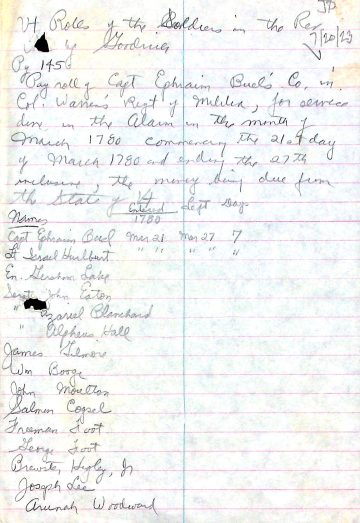 JP
Vt Roles of the Soldiers in the Rev
by Goodrich
7/20/23
Pg 145
Pay roll of Capt Ephraim Buel's Co. in
Col. Warren's Regt of Militia, for service
done in the Alarm in the month of
March 1780 commencing the 21st day
of March 1780 and ending the 27th
inclusive, the money being due from
the State of Vt
Names Entered Left Days
1780
Capt Ephraim Buel Mar 21 Mar 27 7
Lt Israel Hurlburt " " " " "
En. Gershom Lake
Sergt John Eaton
" Azariel Blanchard
" Alpheus Hall
James Gilmore
Wm Booge
John Moulton
Salmon
Freeman Foot
George Foot
Brewster Higley, Jr
Joseph Lee
Arunah Woodward